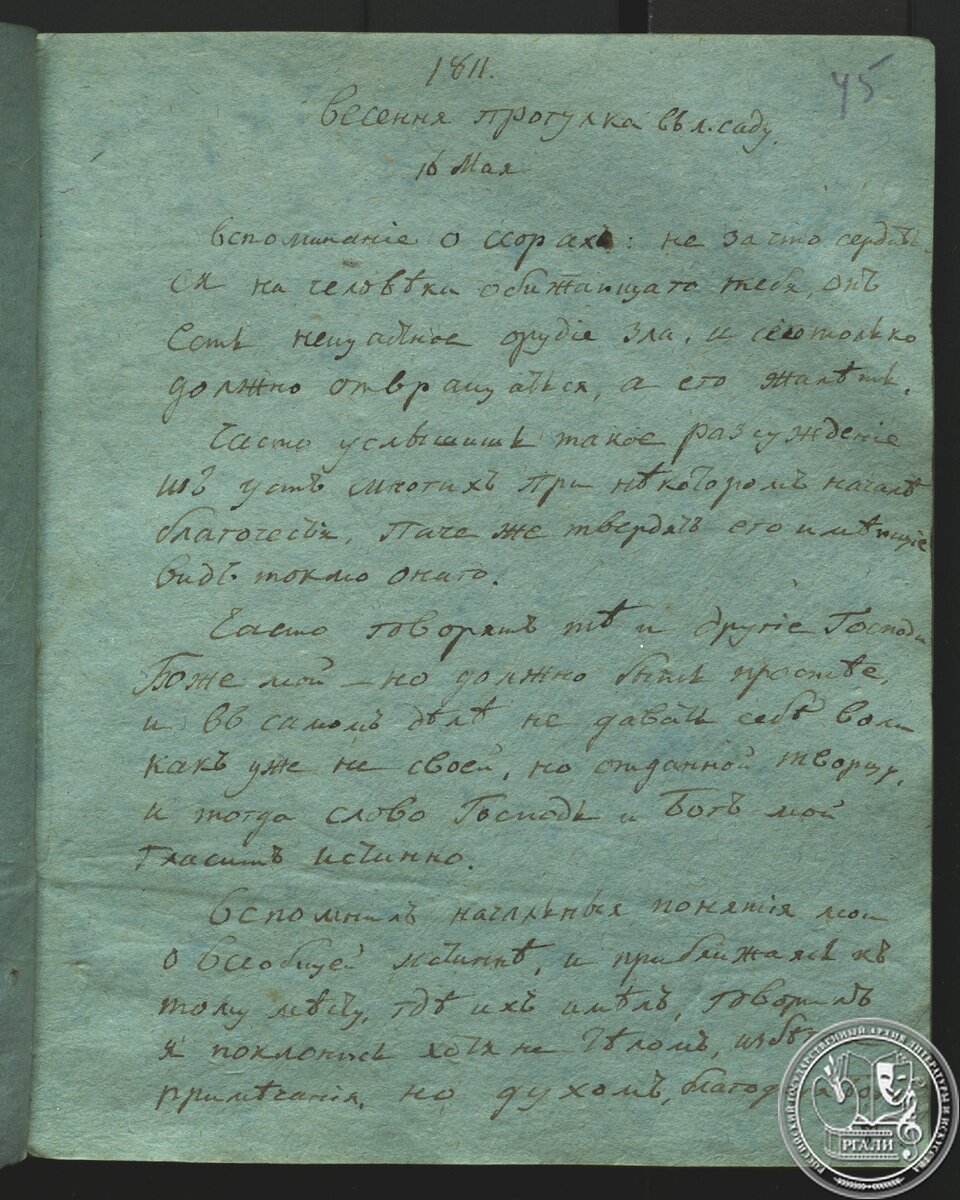 1811.
45
Весення прогулка въ л. саду.
16 Мая
Вспоминание о ссорахъ: не за что сердить
ся на человѣка обижающаго тебя, онъ
есть нещастное орудіе зла, и сего только
должно отвращаться, а его жалѣть.
Часто услышишь такое разсужденіе
изъ устъ многихъ при нѣкоторомъ началѣ
благочестія, паче же твердятъ его имѣющіе
видъ токмо онаго.
Часто говорятъ тѣ и другіе Господи
Боже мой – но должно быть простѣе,
и въ самомъ дѣлѣ не давать себѣ воли
какъ уже не своей, но отданной творцу,
и тогда слово Господь и Богъ мой
гласитъ истинно.
Вспомнилъ начальныя понятія мои
о всеобщей истиннѣ, и приближаясь къ
тому мѣсту, гдѣ ихъ имѣлъ, говорилъ
я поклонись хотя не тѣломъ,
примѣчанія, но духомъ,
РОССИЙСКИЙ ГОСУДАРСТВЕННЫЙ АРХИВ ЛИТЕРАТУРЫ И ИСКУССТВА
РГАЛИ